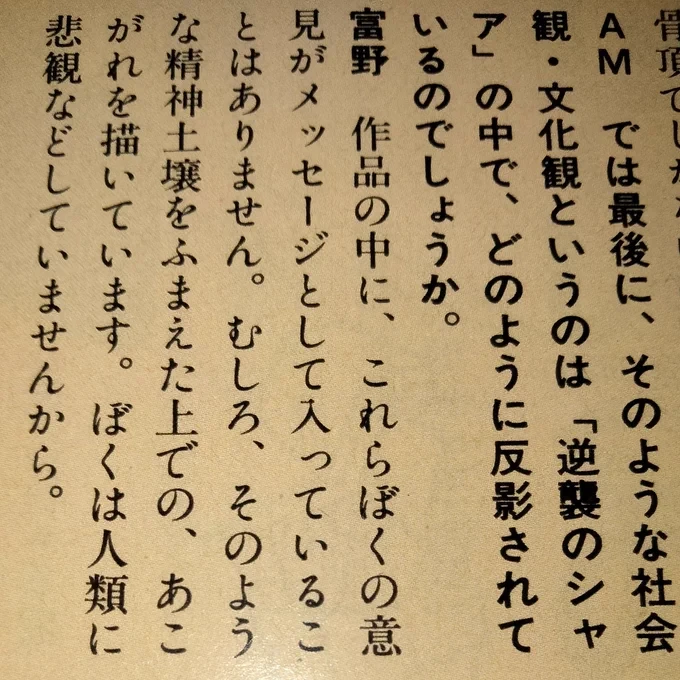 骨頂でしかない
AM　では最後に、そのような社会
観・文化観というのは「逆襲のシャ
ア」の中で、どのように反影されて
いるのでしょうか。
富野　作品の中に、これらぼくの意
見がメッセージとして入っているこ
とはありません。むしろ、そのよう
な精神土壌をふまえた上での、あこ
がれを描いています。ぼくは人類に
悲観などしていませんから。